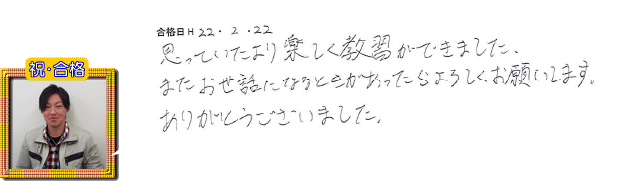 合格日H 22・2・22
思っていたより楽しく教習ができました、
またお世話になるときがあったらよろしくお願いします。
ありがとうございました。
祝・合格